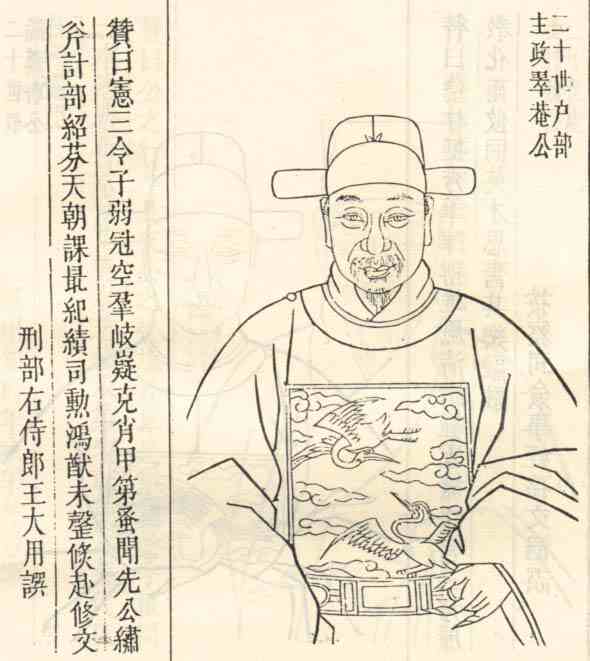 二十世户部
主政翠菴公
贊曰憲三令子弱冠空羣岐嶷克肖甲第蚤聞先公繡
斧計部紹芬天朝課最紀績司勲鴻猷未罄倐赴修文
刑部右侍郎王大用譔